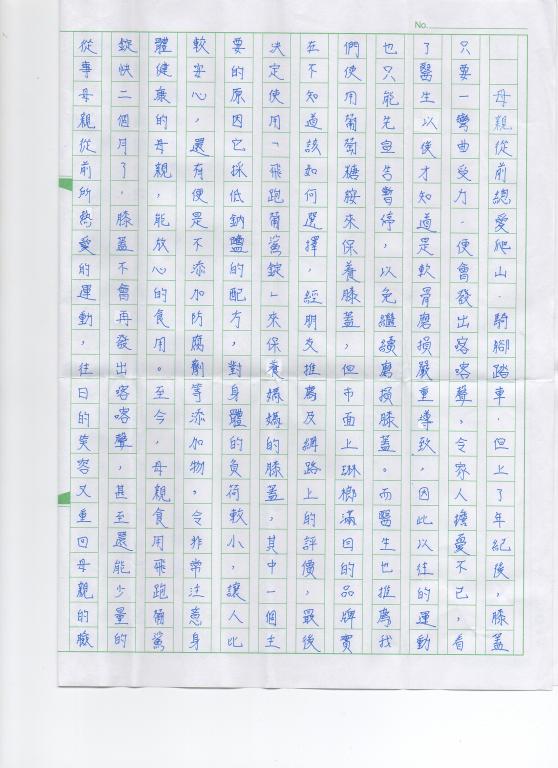 No.
母親從前總愛爬山、騎腳踏車,但上了年紀後,膝蓋
只要一彎曲受力,便會發出喀喀聲,令家人擔憂不已,看
了醫生以後才知道是軟骨磨損嚴重導致,因此以往的運動
也只能先宣告暫停,以免繼續磨損膝蓋。而醫生也推薦我
們使用葡萄糖胺來保養膝蓋,但市面上琳瑯滿目的品牌實
在不知道該如何選擇,經朋友推薦及網路上的評價,最後
決定使用「飛跑葡鯊錠」來保養媽媽的膝蓋,其中一個主
要的原因它採低鈉鹽的配方,對身體的負荷較小,讓人比
較安心,還有便是不添加防腐劑等添加物,令非常注意身
體健康的母親,能放心的食用。至今,母親食用飛跑葡鯊
錠快二個月了,膝蓋不會再發出喀喀聲,甚至還能少量的
從事母親從前所熱愛的運動,往日的笑容又重回母親的臉